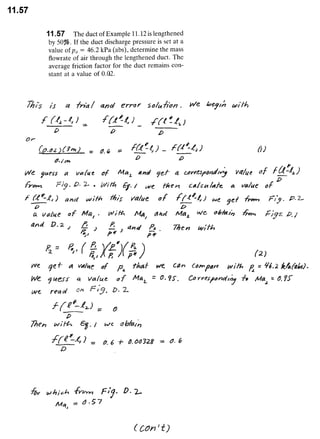 11.57
11.57 The duct of Example 11.12 is lengthened
by 50%. If the duct discharge pressure is set at a
value of p_d = 46.2 kPa (abs), determine the mass
flowrate of air through the lengthened duct. The
average friction factor for the duct remains con-
stant at a value of 0.02.
This is a trial and error solution. We begin with
f(ℓ₂-ℓ₁)/D = f(ℓ*-ℓ₁)/D - f(ℓ*-ℓ₂)/D
or
(0.02)(3m)/0.1m = 0.6 = f(ℓ*-ℓ₁)/D - f(ℓ*-ℓ₂)/D (1)
We guess a value of Ma₂ and get a corresponding value of f(ℓ*-ℓ₂)/D
from Fig. D.2. With Eq. 1 we then calculate a value of
f(ℓ*-ℓ₁)/D and with this value of f(ℓ*-ℓ₁)/D we get from Fig. D.2
a value of Ma₁. With Ma₁ and Ma₂ we obtain from Figs D.1
and D.2, p₁/p₀,₁, p₁/p*, and p₂/p*. Then with
p₂ = p₀,₁ (p₁/p₀,₁)(p*/p₁)(p₂/p*) (2)
we get a value of p₂ that we can compare with p₂ = 46.2 kPa(abs).
We guess a value of Ma₂ = 0.95. Corresponding to Ma₂ = 0.95
we read on Fig. D.2
f(ℓ*-ℓ₂)/D = 0
Then with Eq. 1 we obtain
f(ℓ*-ℓ₁)/D = 0.6 + 0.00328 = 0.6
for which from Fig. D.2
Ma₁ = 0.57
(con't)